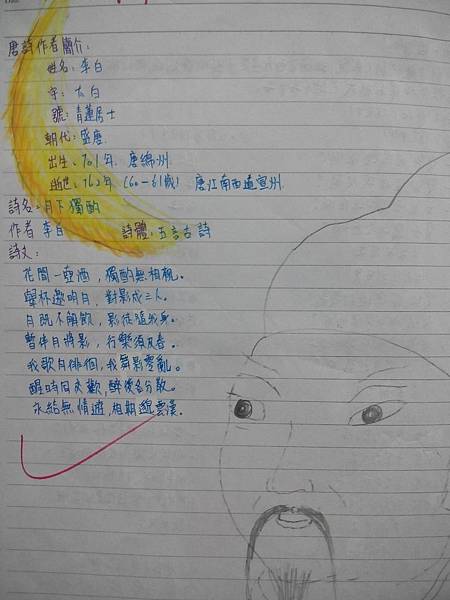 唐詩作者簡介:
姓名:李白
字:太白
號:青蓮居士
朝代:盛唐
出生:701年 唐綿州
逝世:762年(60-61歲) 唐江南西道宣州
詩名:月下獨酌
作者 李白 詩體:五言古詩
詩文:
花間一壺酒,獨酌無相親。
舉杯邀明月,對影成三人。
月既不解飲,影徒隨我身。
暫伴月將影,行樂須及春。
我歌月徘徊,我舞影零亂。
醒時同交歡,醉後各分散。
永結無情遊,相期邈雲漢。